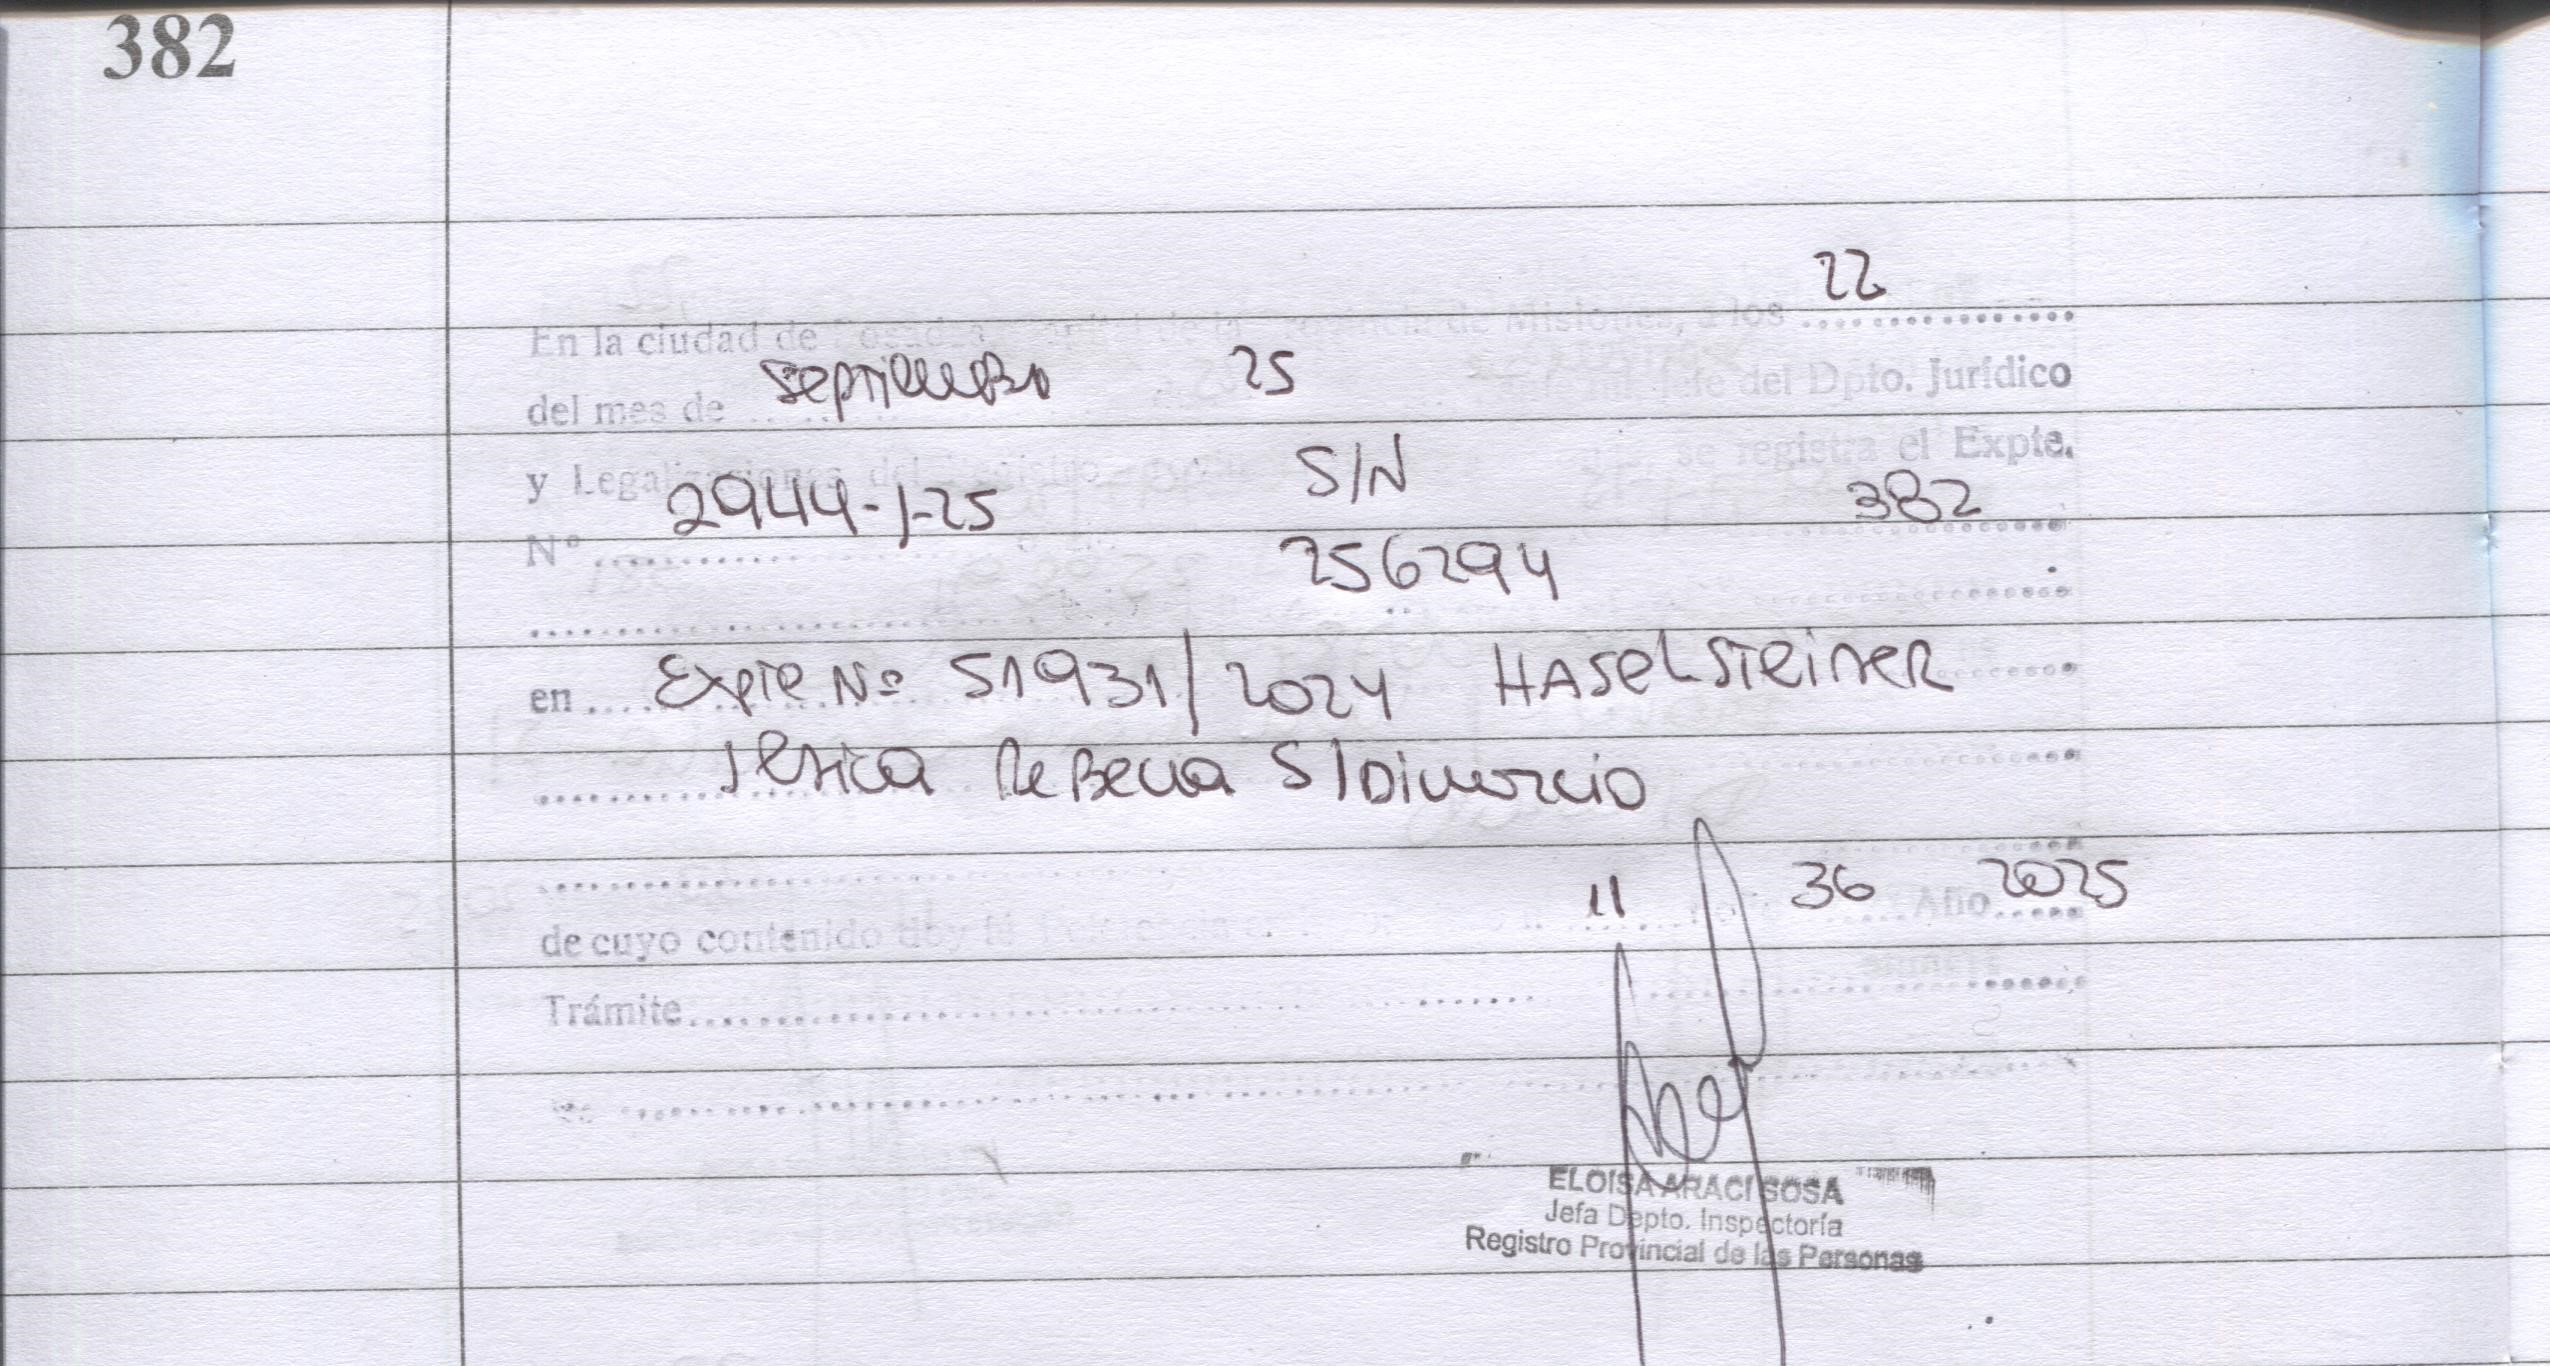 382
22
En la ciudad de Posadas, capital de la provincia de Misiones, a los
septiembre 25
del mes de del Dpto. Jurídico
S/N
y Legalizaciones del se registra el Expte.
2944-J-25 382
Nº
256294
en Expte Nº 51931/2024 HASELSTEINER
Jesica Rebeca S/Divorcio
11 36 2025
de cuyo contenido doy fé Año
Trámite
ELOISA ARACI SOSA
Jefa Depto. Inspectoría
Registro Provincial de las Personas